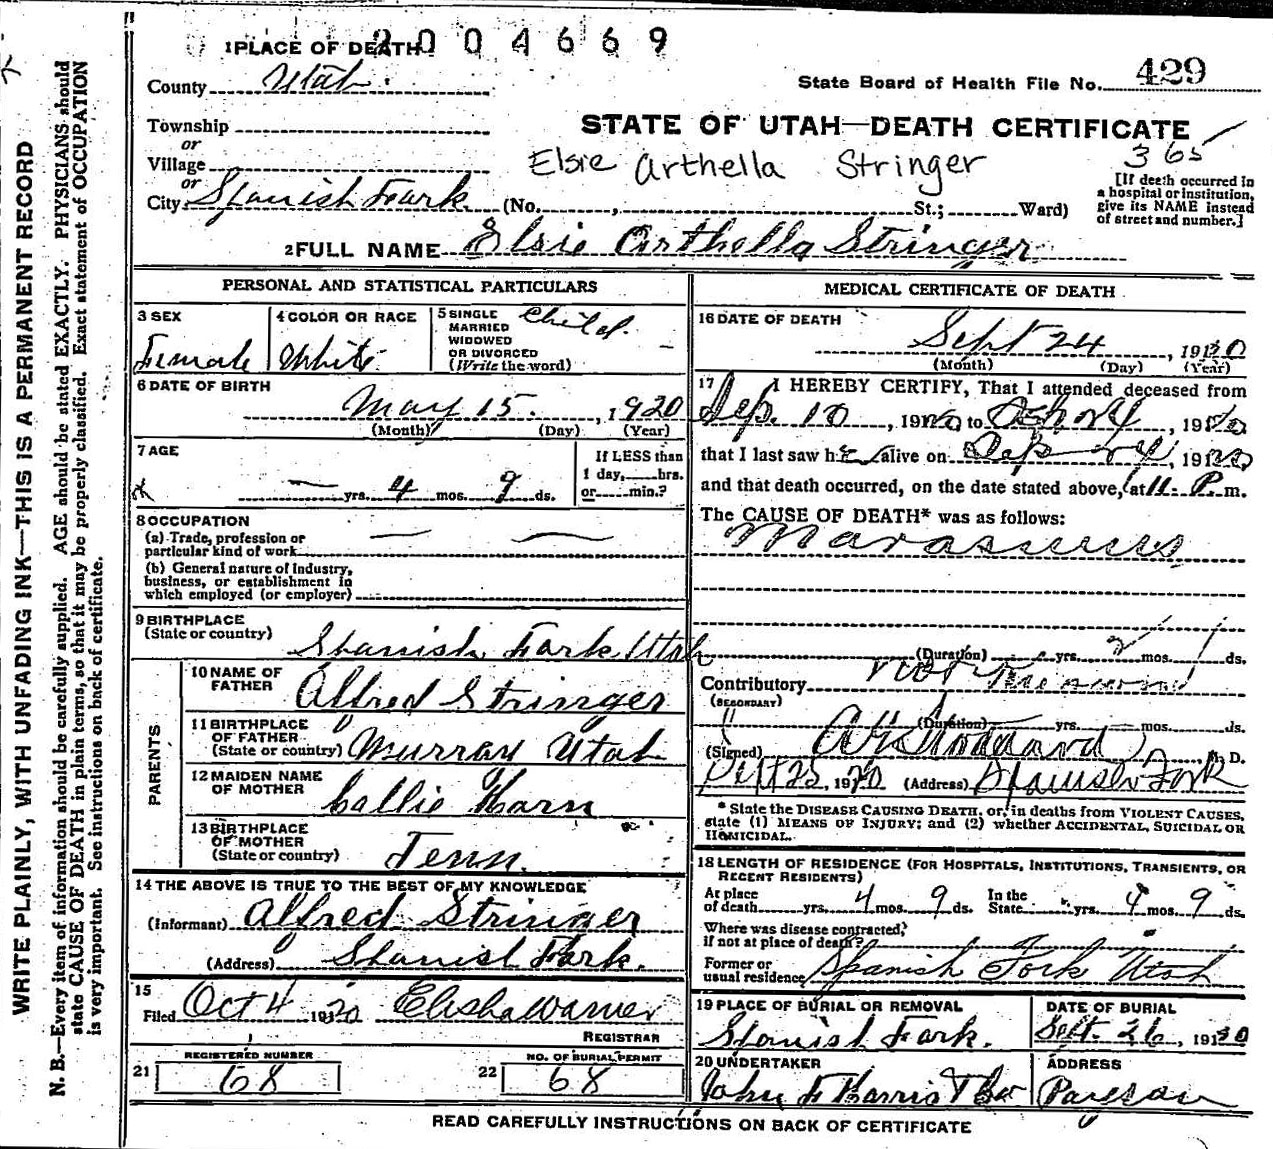 2004669
1 PLACE OF DEATH
County Utah.
State Board of Health File No. 429
Township
STATE OF UTAH—DEATH CERTIFICATE
or
Village
Elsie Arthella Stringer
365
or
City Spanish Fork (No. , St.; Ward)
[If death occurred in
a hospital or institution,
give its NAME instead
of street and number.]
2 FULL NAME Elsie Arthella Stringer
PERSONAL AND STATISTICAL PARTICULARS
3 SEX
Female
4 COLOR OR RACE
White
5 SINGLE
MARRIED
WIDOWED
OR DIVORCED
(Write the word)
Child.
6 DATE OF BIRTH
May 15. , 1920
(Month) (Day) (Year)
7 AGE
— yrs. 4 mos. 9 ds.
If LESS than
1 day, hrs.
or min.?
8 OCCUPATION
(a) Trade, profession or
particular kind of work — —
(b) General nature of Industry,
business, or establishment in
which employed (or employer)
9 BIRTHPLACE
(State or country) Spanish Fork Utah
PARENTS
10 NAME OF
FATHER Alfred Stringer
11 BIRTHPLACE
OF FATHER
(State or country) Murray Utah
12 MAIDEN NAME
OF MOTHER Callie
13 BIRTHPLACE
OF MOTHER
(State or country) Tenn.
14 THE ABOVE IS TRUE TO THE BEST OF MY KNOWLEDGE
(Informant) Alfred Stringer
(Address) Spanish Fork.
15
Filed Oct 4 1920 Elisha Warner
REGISTRAR
REGISTERED NUMBER
21 68
NO. OF BURIAL PERMIT
22 68
MEDICAL CERTIFICATE OF DEATH
16 DATE OF DEATH
Sept 24 , 1920
(Month) (Day) (Year)
17 I HEREBY CERTIFY, That I attended deceased from
Sep. 10 , 1920 to , 1920
that I last saw her alive on Sep 24 , 1920
and that death occurred, on the date stated above, at 11. P. m.
The CAUSE OF DEATH* was as follows:
Marasmus
(Duration) yrs. mos. ds.
Contributory not known
(SECONDARY)
(Duration) yrs. mos. ds.
(Signed) , M. D.
Sept 25, 1920 (Address) Spanish Fork
* State the DISEASE CAUSING DEATH, or, in deaths from VIOLENT CAUSES,
state (1) MEANS OF INJURY; and (2) whether ACCIDENTAL, SUICIDAL OR
HOMICIDAL.
18 LENGTH OF RESIDENCE (FOR HOSPITALS, INSTITUTIONS, TRANSIENTS, OR
RECENT RESIDENTS)
At place
of death yrs. 4 mos. 9 ds.
In the
State yrs. 4 mos. 9 ds.
Where was disease contracted,
if not at place of death?
Former or
usual residence Spanish Fork Utah
19 PLACE OF BURIAL OR REMOVAL
Spanish Fork.
DATE OF BURIAL
Sept. 26, 1920
20 UNDERTAKER
John F Harris
ADDRESS
Payson
READ CAREFULLY INSTRUCTIONS ON BACK OF CERTIFICATE
WRITE PLAINLY, WITH UNFADING INK—THIS IS A PERMANENT RECORD
N. B.—Every item of information should be carefully supplied. AGE should be stated EXACTLY. PHYSICIANS should
state CAUSE OF DEATH in plain terms, so that it may be properly classified. Exact statement of OCCUPATION
is very important. See instructions on back of certificate.